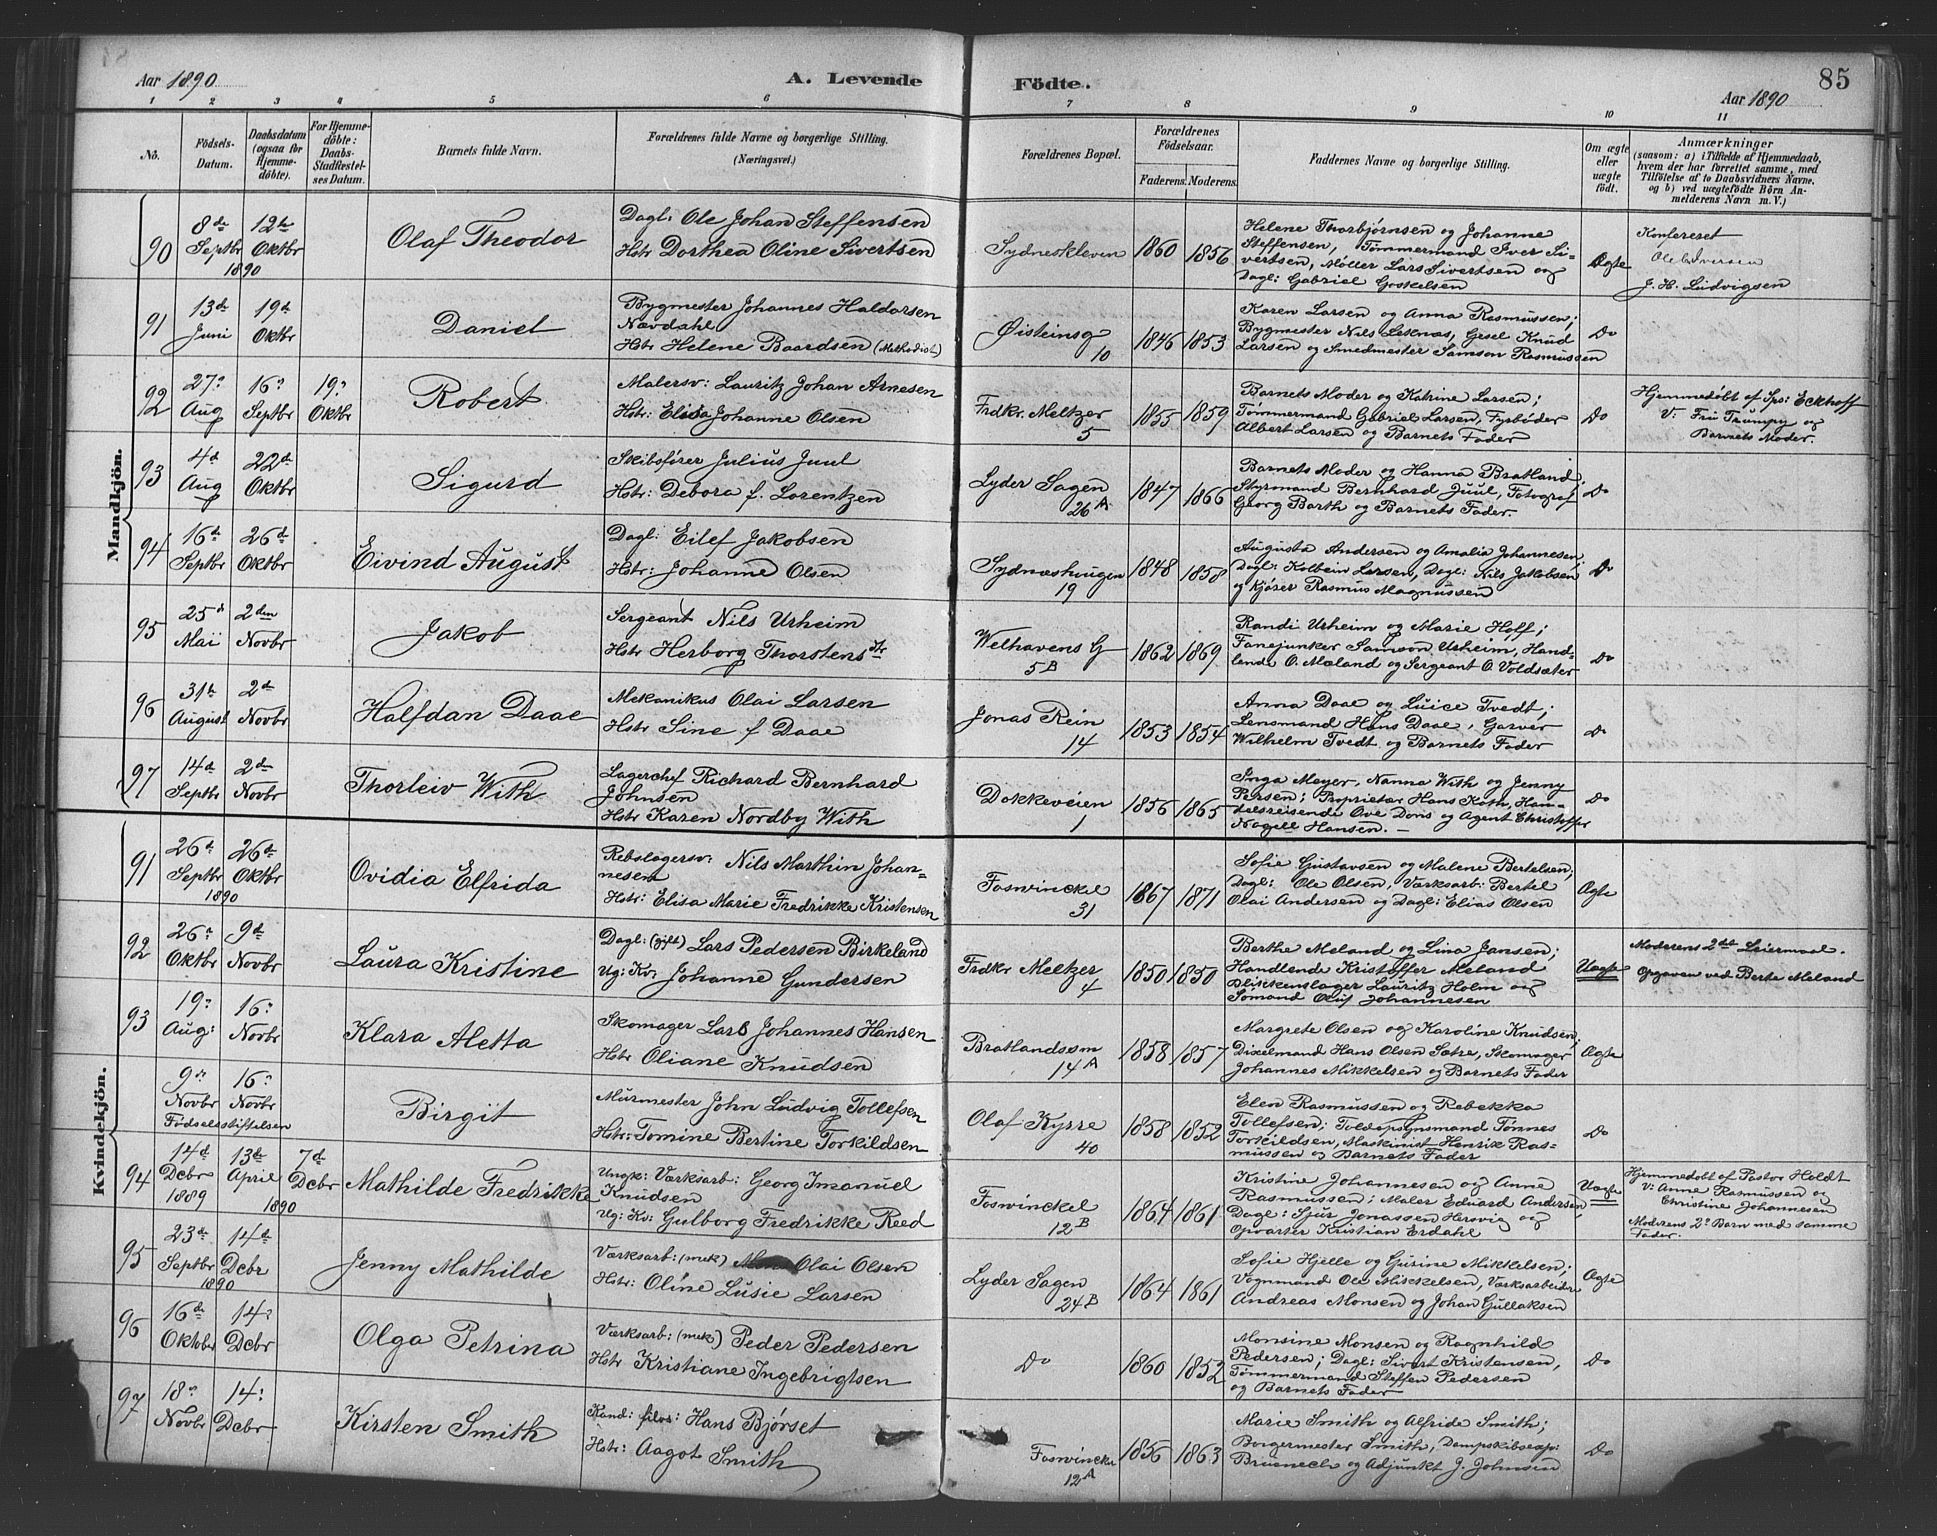 Aar 1890
A. Levende
Födte.
85
Aar 1890
1 2 3 4 5 6 7 8 9 10 11
No.
Födsels-
Datum.
Daabsdatum
(ogsaa for
Hjemme-
döbte).
For Hjemme-
döbte:
Daabs-
Stadfæstel-
ses Datum.
Barnets fulde Navn.
Forældrenes fulde Navne og borgerlige Stilling.
(Næringsvei.)
Forældrenes Bopæl.
Forældrenes
Födselsaar.
Faderens. Moderens.
Faddernes Navne og borgerlige Stilling.
Om ægte
eller
uægte
födt.
Anmærkninger
(saasom: a) i Tilfælde af Hjemmedaab,
hvem der har forrettet samme, med
Tilföielse af to Daabsvidners Navne,
og b) ved uægtefödte Börn An-
melderens Navn m. V.)
Mandkjön.
90
8de Septbr 1890
12te Oktbr
Olaf Theodor
Dagl: Ole Johan Steffensen
Hstr Dorthea Oline Sivertsen
Sydneskleven
1860 1856
Helene Thorbjørnsen og Johanne
Steffensen, Tømmermand Iver Si-
vertsen, Møller Lars Sivertsen og
Dagl: Gabriel Goskelsen
Ægte
Konfereret
Ole Iversen
J. H. Ludvigsen
91
13de Juni
19d Oktbr
Daniel
Bygmester Johannes Haldorsen
Nævdahl
Hstr Helene Baardsen (Methodist)
Øisteinsg
10
1846 1853
Karen Larsen og Anna Rasmussen;
Bygmester Nils Leknæs, Gesel Knud
Larsen og Smedmester Samson Rasmussen
Do
92
27? Aug
16? Septbr
19? Oktbr
Robert
Malersv: Lauritz Johan Arnesen
Hstr: Elisa Johanne Olsen
Frdkr. Meltzer
5
1855 1859
Barnets Moder og Katrine Larsen;
Tømmermand Gabriel Larsen, Fyrbøder
Albert Larsen og Barnets Fader
Do
Hjemmedøbt af Sps: Eckhoff
V: Fru Trumpy og
Barnets Moder.
93
4d Aug
22d Oktbr
Sigurd
Skibsfører Julius Juul
Hstr: Debora f. Lorentzen
Lyder Sagen
26 A
1847 1866
Barnets Moder og Hanna Bratland,
Styrmand Bernhard Juul, Fotograf
Georg Barth og Barnets Fader.
Do
94
16d Septbr
26d Oktbr
Eivind August
Dagl: Eilef Jakobsen
Hstr: Johanne Olsen
Sydneshaugen
19
1848 1858
Augusta Andersen og Amalia Johannesen;
Dagl: Kolbein Larsen, Dagl: Nils Jakobsen
og Kjører Rasmus Magnussen
Do
95
25d Mai
2den Novbr
Jakob
Sergeant Nils Urheim
Hstr Herborg Thorstensdtr
Welhavens G
5 B
1862 1869
Randi Urheim og Marie Hoff;
Fanejunker Samson Urheim, Hand-
lende O. Mæland og Sergeant O. Voldsæter
Do
96
31te August
2d Novbr
Halfdan Daae
Mekanikus Olai Larsen
Hstr Sine f Daae
Jonas Rein
14
1853 1854
Anna Daae og Luice Tvedt;
Lensmand Hans Daae, Garver
Wilhelm Tvedt og Barnets Fader
Do
97
14d Septbr
2den Novbr
Thorleiv With
Lagerchef Richard Bernhard
Johnsen
Hstr Karen Nordby With
Dokkeveien
1
1856 1865
Inga Meyer, Nanna With og Jenny
Persen; Proprietær Hans Koth, Han-
delsreisende Ove Dons og Agent Christoffer
Nagell Hansen. —
Do
Kvindekjön.
91
26de Septbr 1890
26de Oktbr
Ovidia Elfrida
Rebslagersv: Nils Marthin Johan-
nesen
Hstr: Elisa Marie Fredrikke Kristensen
Foswinckel
31
1867 1871
Sofie Gustavsen og Malene Bertelsen;
Dagl: Ole Olsen, Værksarb: Bertel
Olai Andersen og Dagl: Elias Olsen
Ægte
92
26? Oktbr
9de Novbr
Laura Kristine
Dagl: (gift) Lars Pedersen Birkeland
Ug: Kv: Johanne Gundersen
Frdkr Meltzer
4
1850 1850
Berthe Meland og Lina Jansen;
Handlende Kristoffer Meland
Blikkenslager Lauritz Holm og
Sømand Oluf Johannesen
Uægte
Moderens 2det Leiermaal.
Opgaven ved Berte Meland
93
19? Aug:
16? Novbr
Klara Aletta
Skomager Lars Johannes Hansen
Hstr Oliane Knudsen
Bratlandssm
14 A
1858 1857
Margrete Olsen og Karoline Knudsen;
Dixelmand Hans Olsen Sætre, Skomager
Johannes Mikkelsen og Barnets Fader
Ægte
9de Novbr
16? Novbr
Födselsstiftelsen
Birgit
Murmester John Ludvig Tollefsen
Hstr: Tomine Bertine Torkildsen
Olaf Kyrre
40
1858 1852
Elen Rasmussen og Rebekka
Tollefsen; Toldopsynsmand Tønnes
Torkildsen, Maskinist Henrik Ras-
mussen og Barnets Fader
Do
94
14d Dcbr 1889
13de April
7d Dcbr
1890
Mathilde Fredrikke
Ungk: Værksarb: Georg Imanuel
Knudsen
Ug: Kv: Gulborg Fredrikke Reed
Foswinckel
12 B
1864 1861
Kristine Johannesen og Anne
Rasmussen; Maler Eduard Andersen,
Dagl: Sjur Jonassen Hersvig og
Opvarter Kristian Erdahl
Uægte
Hjemmedøbt af Pastor Holdt
V: Anne Rasmussen og
Christine Johannesen
Moderens 2? Barn med samme
Fader.
95
23de Septbr 1890
14d Dcbr
Jenny Mathilde
Værksarb: (mek) Olai Olsen
Hstr: Oline Lusie Larsen
Lyder Sagen
24 B
1864 1861
Sofie Hjelle og Gurine Mikkelsen;
Vognmand Ole Mikkelsen, Værksarbeider
Andreas Monsen og Johan Gullaksen
Ægte
96
16de Oktober
14? Dcbr
Olga Petrina
Værksarb: (mek) Peder Pedersen
Hstr Kristiane Ingebrigtsen
Do
1860 1852
Monsine Monsen og Ragnhild
Pedersen; Dagl: Sivert Kristensen,
Tømmermand Steffen Pedersen
og Barnets Fader
Do
97
18? Novbr
14? Dcbr
Kirsten Smith
Kand: filos: Hans Bjørset
Hstr: Aagot Smith
Foswinckel
12 A
1856 1863
Marie Smith og Alfride Smith;
Borgermester Smith, Dampskibsexp:
Bruenech og Adjunkt J. Johnsen
Do